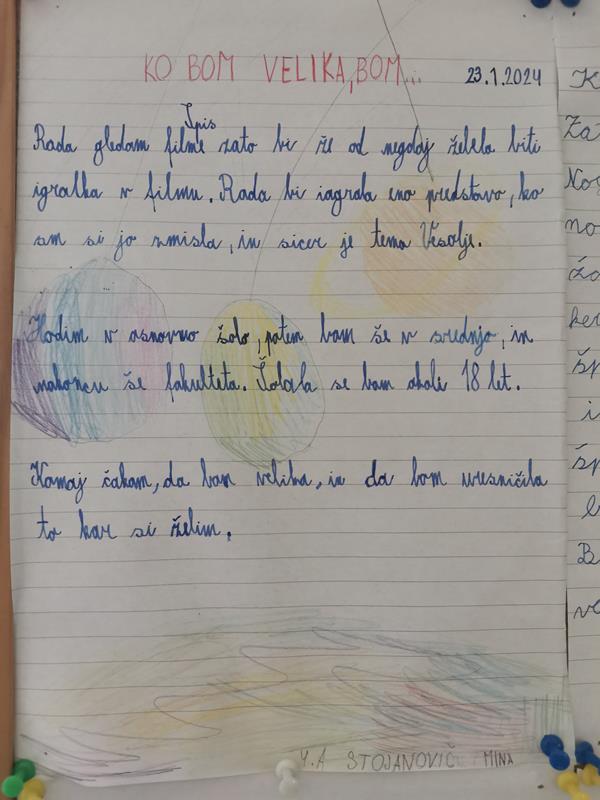 KO BOM VELIKA, BOM...
23.1.2024
Spis
Rada gledam filme zato bi že od negdaj želela biti
igralka v filmu. Rada bi zagrala eno predstavo, ko
sm si jo zmisla, in sicer je tema Vesolje.
Hodim v osnovno šolo, potem bom še v srednjo, in
nakoncu še fakulteta. Šolala se bom okoli 18 let.
Komaj čakam, da bom velika, in da bom uresničila
to kar si želim.
4.A STOJANOVIČ MINA
K
Za
No
no
žo
ke
šp
i
šp
B